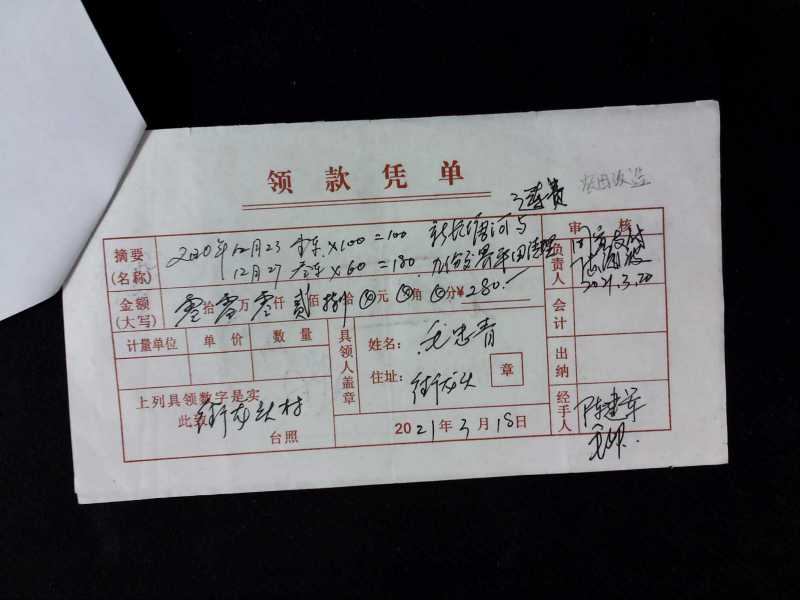 领款凭单
农田改造
运费
摘要
(名称)
2020年12月23 壹车×100=100
12月27 叁车×60=180
金额
(大写)
零拾零万零仟贰佰捌拾⊗元⊗角⊗分¥280.—
计量单位 单价 数量
具领人盖章
姓名: 毛忠青
住址: 街龙头
章
上列具领数字是实
此致
街龙头村
台照
2021年3月18日
审核
负责人
同意支付
2021.3.20
会计
出纳
经手人
陈建军